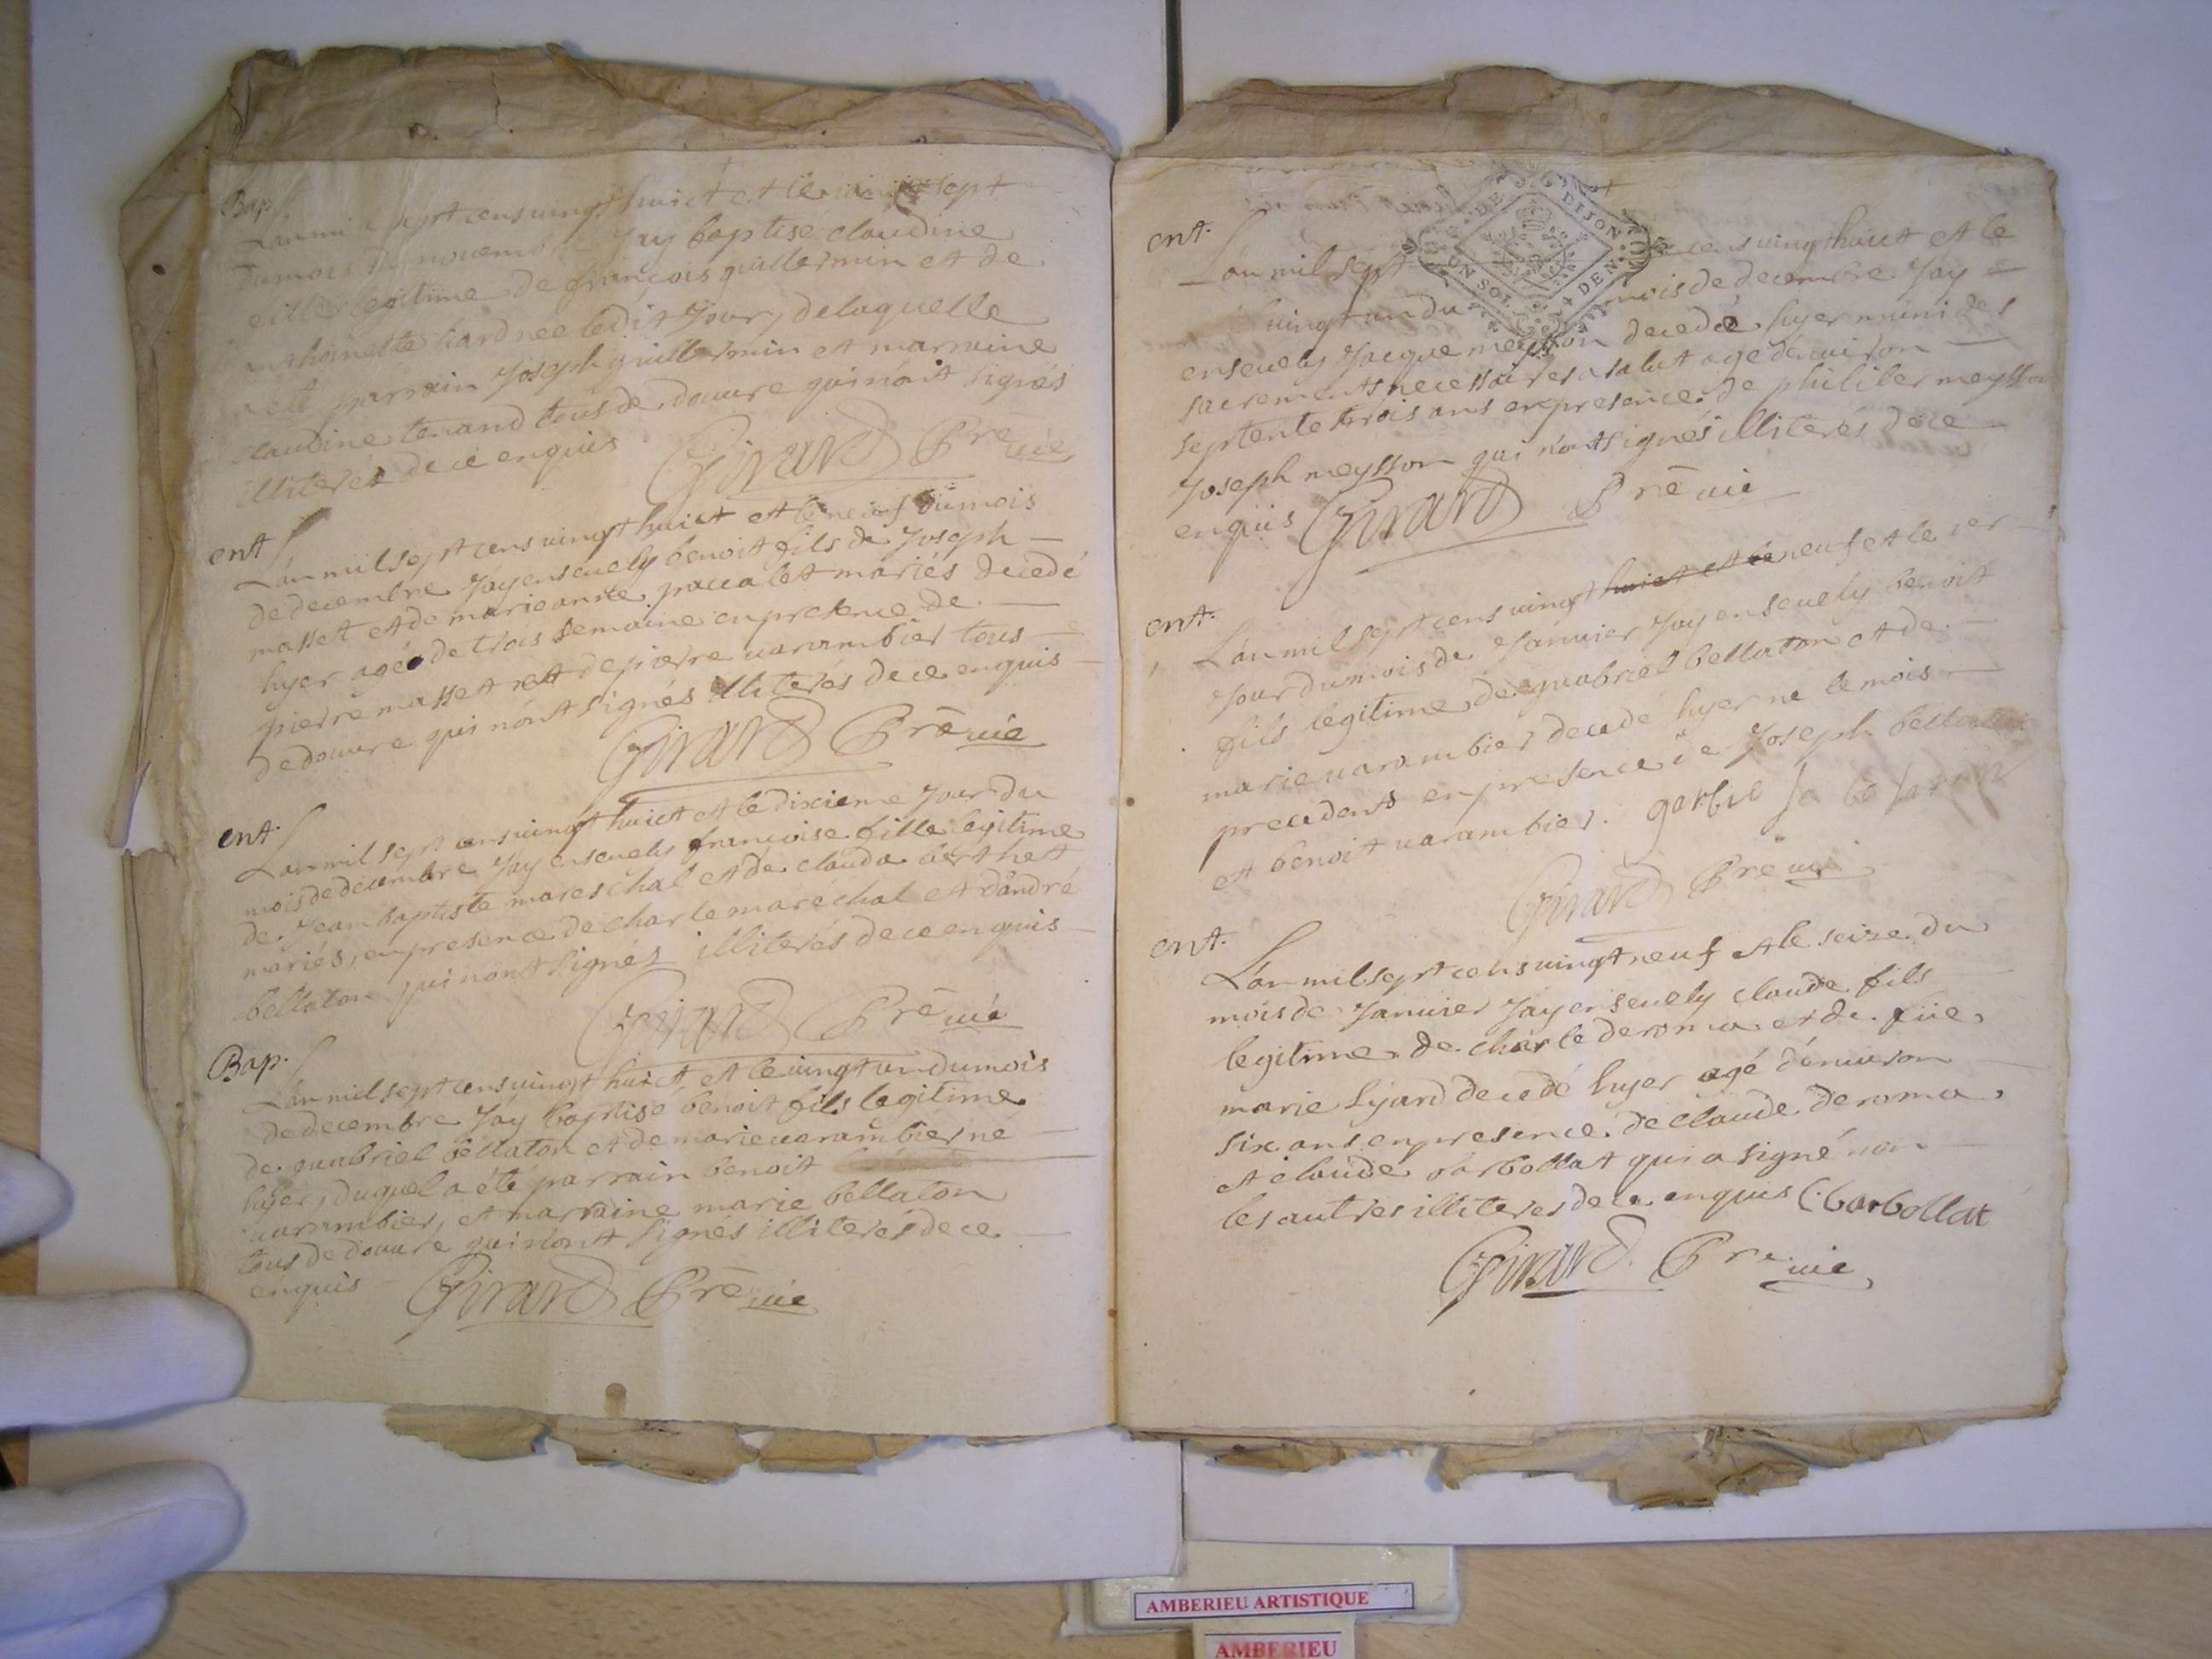 Bap.
Lan mil sept cens vingt huict et le vingt sept
du mois de novembre Jay baptise claudine
fille legitime de françois guillermin et de
anthoinette liard nee ledit Jour, delaquelle
a eté parrain Joseph guillermin et marraine
claudine tenand tous de douure qui n'ont signés
illiterés de ce enquis Girard Pre vié
ent.
L'an mil sept cens vingt huict et le neuf du mois
de decembre Jay ensevely benoit fils de Joseph
masset et de marieanne paccalet mariés decedé
hyer agé de trois semaine en presence de
pierre masset et de pierre varambier tous
de douure qui n'ont signés illiterés de ce enquis
Girard Pre vié
ent.
L'an mil sept cens vingt huict et le dixieme Jour du
mois de decembre Jay ensevely françoise fille legitime
de Jean baptiste mareschal et de clauda berthet
mariés, en presence de charle maréchal et d'andré
bellaton qui n'ont signés illiterés de ce enquis
Girard Pre vié
Bap.
L'an mil sept cens vingt huict, et le vingt un du mois
de decembre Jay baptisé benoit fils legitime
de guabriel bellaton et de marie varambier né
hyer, duquel a été parrain benoit
varambier, et marraine marie bellaton
tous de douure qui n'ont signés illiterés de ce
enquis Girard Pre vie
DE DIJON
UN SOL 4 DEN.
ent.
L'an mil sept cens vingt huict et le
vingt un du mois de decembre Jay
ensevely Jacque meysson decedé hyer muni des
sacrements necessaires a salut agé d'environ
septente trois ans en presence de philiber meysson
Joseph meysson qui n'ont signés illiterés de ce
enquis Girard Pre vié
ent.
L'an mil sept cens vingt huict et le neuf et le 1er
Jour du mois de Janvier Jay ensevely benoit
fils legitime de guabriel bellaton et de
marie varambier decedé hyer ne le mois
precedent en presence de Joseph bellaton
et benoit varambier.
Girard Pre vié
ent.
L'an mil sept cens vingt neuf et le seize du
mois de Janvier Jay ensevely claude fils
legitime de charle deroma et de
marie lyard decedé hyer agé d'environ
six ans en presence de claude deroma
et claude barbollat qui a signé non
les autres illiteres de ce enquis C. barbollat
Girard Pre vié
AMBERIEU ARTISTIQUE
AMBERIEU